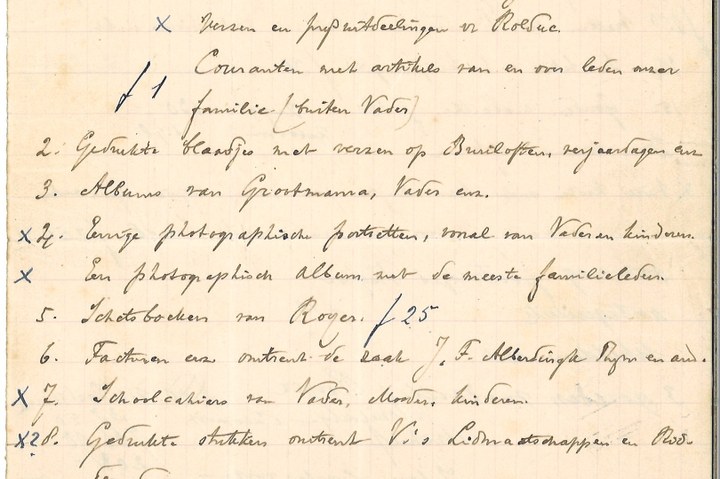 x Verzen en prijsuitdeelingen v. Rolduc.
f 1 Couranten met artikels van en over leden onzer
familie (buiten Vader)
2. Gedrukte blaadjes met verzen op Bruiloften, verjaardagen enz
3. Albums van Grootmama, Vader enz.
x 4. Eenige photographische portretten, vooral van Vader en kinderen.
x Een photographisch album met de meeste familieleden.
5. Schetsboeken van Royer. f 25
6. Facturen enz omtrent de zaak J. F. Alberdingk Thym en and.
x 7. Schoolcahiers van Vader, Moeder, kinderen.
x2 8. Gedrukte stukken omtrent V.'s Lidmaatschappen en Rid-